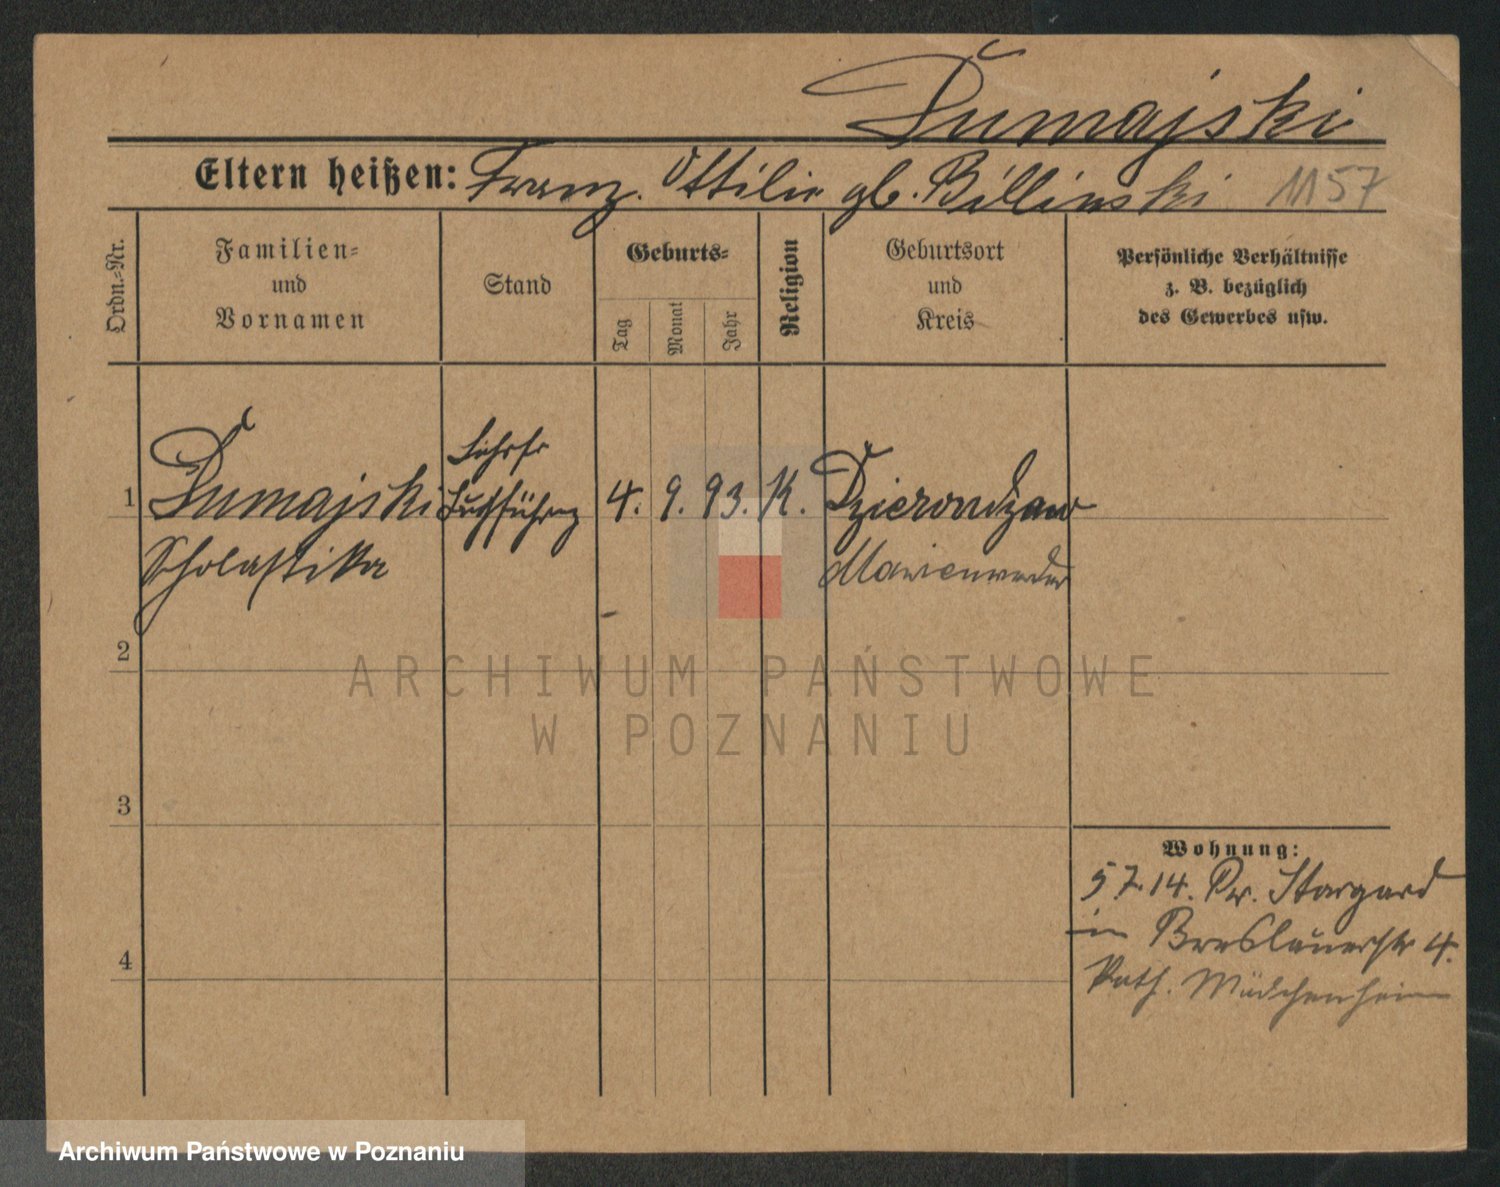 Dumajski
Eltern heißen: Franz. Ottilie gb. Billinski 1157
Ordn.=Nr.
Familien=
und
Vornamen
Stand
Geburts=
Tag
Monat
Jahr
Religion
Geburtsort
und
Kreis
Persönliche Verhältnisse
z. B. bezüglich
des Gewerbes usw.
1 Dumajski 4. 9. 93. K. Dzierondzno
Scholastika Marienwerder
2
3
4
Wohnung:
5 7. 14. Pr. Stargard
in Breslauerstr 4.
Kath. Mädchenheim
ARCHIWUM PAŃSTWOWE
W POZNANIU
Archiwum Państwowe w Poznaniu